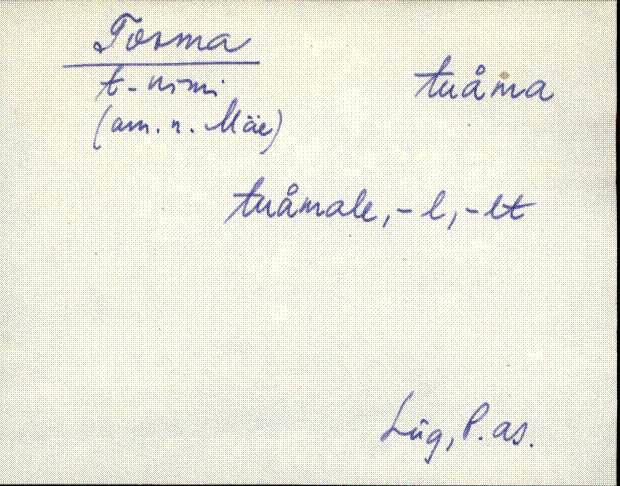 Tooma
t-nimi
(am. n. Mäe)
tuåma
tuåmale, -l, -lt
Lüg, P. as.